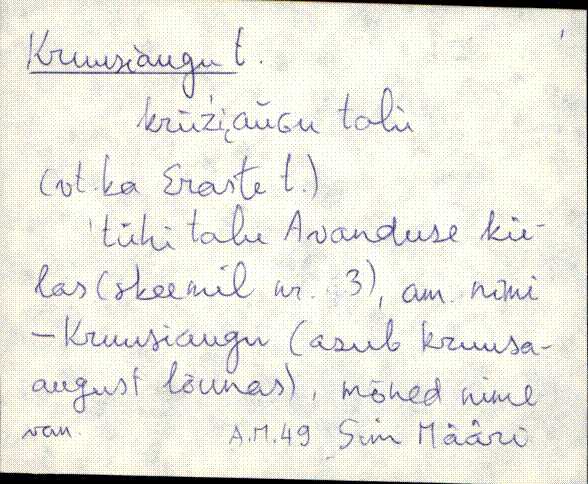 Kruusiaugu t.
krūži̮aùɢu talu
(vt. ka Eraste t.)
tühi talu Avanduse kü-
las (skeemil nr. 3), am. nimi
– Kruusiaugu (asub kruusa-
august lõunas), mõned nime
van. A.M.49 Sim Määri